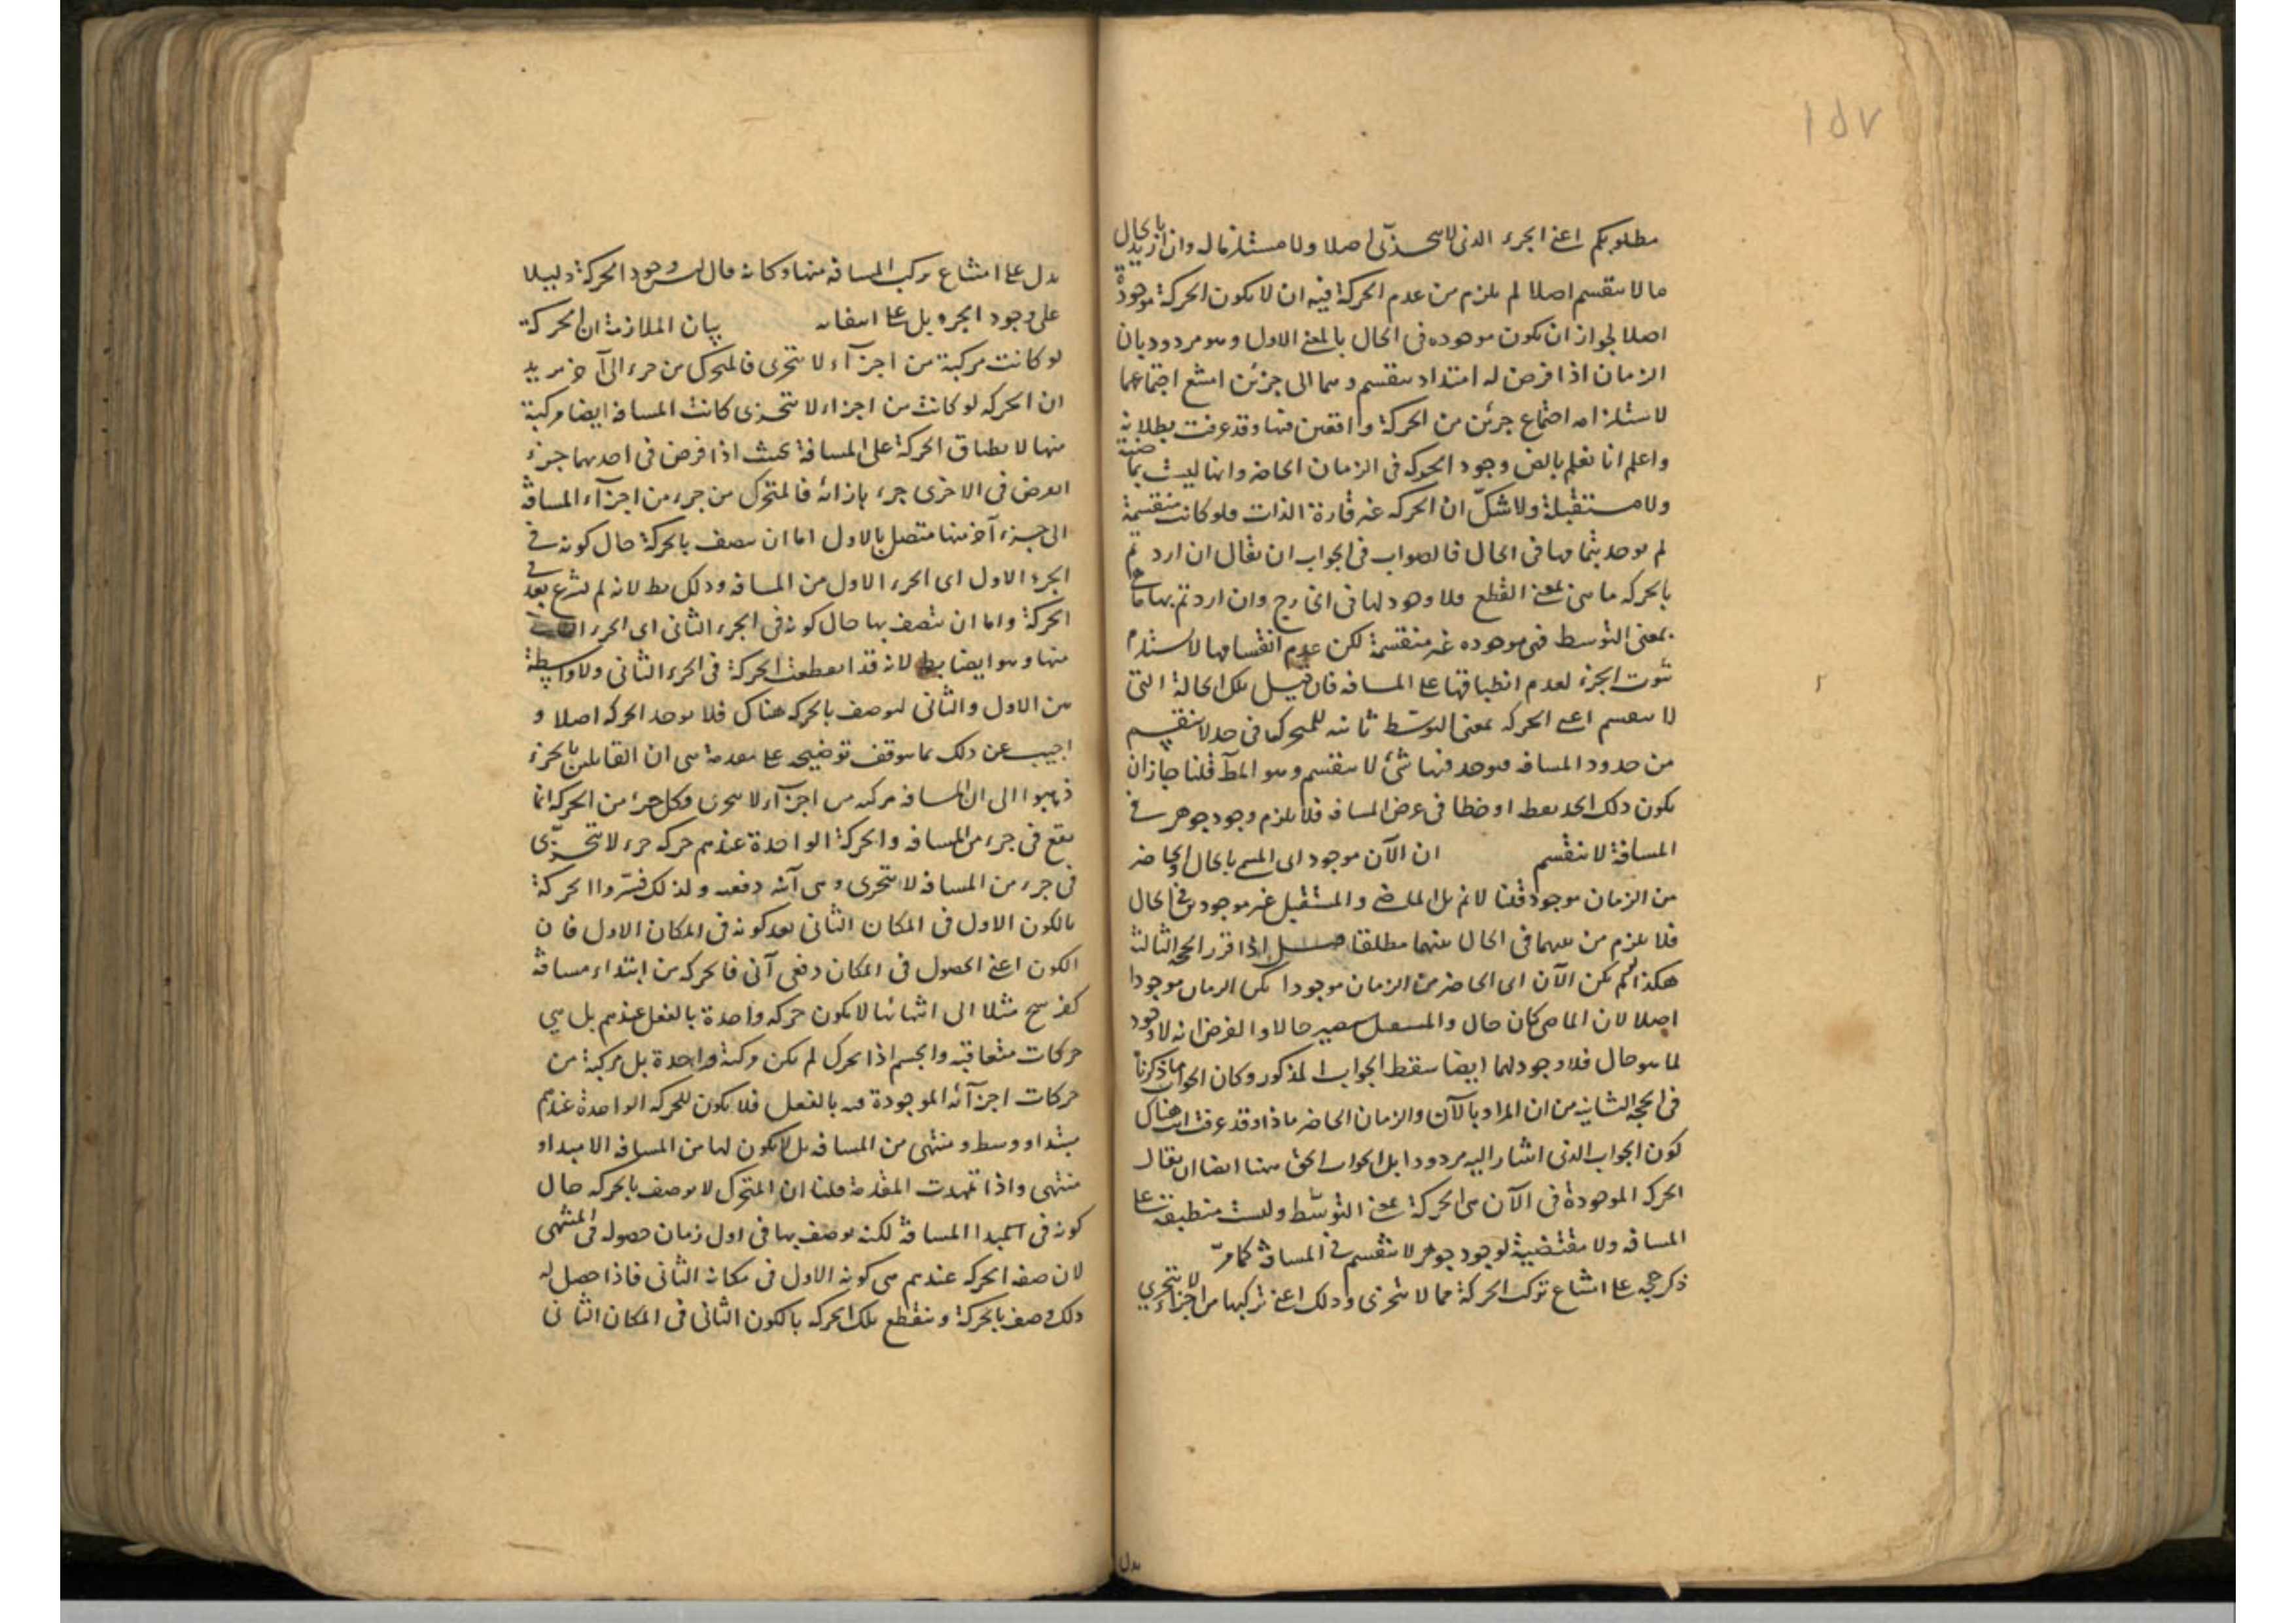 ١٥٧
مطلوبكم اعنى الجزء الذى لا يتجزى اصلا ولا مستلزما له وان اريد بالحال
ما لا ينقسم اصلا لم يلزم من عدم الحركة فيه ان لا يكون الحركة موجودة
اصلا لجواز ان يكون موجوده فى الحال بالمعنى الاول وهو مردود بان
الزمان اذا فرض له امتداد ينقسم وهما الى جزئين امتنع اجتماعهما
لاستلزامه اجتماع جزئين من الحركة واقعين فيها وقد عرفت بطلانه
واعلم انا نعلم بالض وجود الحركة فى الزمان الحاضر وانها ليست بماضية
ولا مستقبلة ولا شك ان الحركه غير قارة الذات فلو كانت منقسمة
لم يوجد بتمامها فى الحال فالصواب فى الجواب ان يقال ان اردتم
بالحركه ما هى بمعنى القطع فلا وجود لها فى الخارج وان اردتم بها ما هى
بمعنى التوسط فهى موجوده غير منقسمة لكن عدم انقسامها لا يستلزم
ثبوت الجزء لعدم انطباقها على المسافه فان قيل تلك الحالة التى
لا ينقسم اعنى الحركه بمعنى التوسط ثابته للمتحرك فى حد لا ينقسم
من حدود المسافه فيوجد فيها شئ لا ينقسم وهو المط قلنا جاز ان
يكون ذلك الحد نقطة او خطا فى عرض المسافه فلا يلزم وجود جوهر فى
المسافة لا ينقسم ان الآن موجود اى المسمى بالحال والحاضر
من الزمان موجود قلنا لا نم بل الماضى والمستقبل غير موجودين فى الحال
فلا يلزم من نفيهما فى الحال نفيهما مطلقا اذا قرر الحجة الثالثة
هكذا لو لم يكن الآن اى الحاضر من الزمان موجودا لم يكن الزمان موجودا
اصلا لان الماضى كان حال والمستقبل سيصير حالا والفرض انه لا وجود
لما هو حال فلا وجود لهما ايضا سقط الجواب المذكور وكان الجواب ما ذكرنا
فى الحجة الثانية من ان المراد بالآن والزمان الحاضر ماذا وقد عرفت هناك
كون الجواب الذى اشار اليه مردودا بل الجواب الحق ههنا ايضا ان يقال
الحركه الموجودة فى الآن هى الحركة بمعنى التوسط وليست منطبقة على
المسافه ولا مقتضية لوجود جوهر لا ينقسم فى المسافة كما مر
ذكر حجه على امتناع تركب الحركة مما لا يتجزى وذلك اعنى تركبها من اجزاء لا يتجزى
يدل
يدل على امتناع تركب المسافه منها وكانه قال ليس وجود الحركة دليلا
على وجود الجزء بل على انتفائه بيان الملازمة ان الحركة
لو كانت مركبة من اجزآء لا يتجزى فالمتحرك من جزء الى آخر يريد
ان الحركه لو كانت من اجزاء لا يتجزى كانت المسافة ايضا مركبة
منها لانطباق الحركة على المسافة بحيث اذا فرض فى احديهما جزء
افرض فى الاخرى جزء بازائه فالمتحرك من جزء من اجزآء المسافة
الى جزء آخر منها متصل بالاول اما ان يتصف بالحركة حال كونه فى
الجزء الاول اى الجزء الاول من المسافه وذلك بط لانه لم يشرع بعد فى
الحركة واما ان يتصف بها حال كونه فى الجزء الثانى اى الجزء الثانى
منها وهو ايضا بط لانه قد انقطعت الحركة فى الجزء الثانى ولا واسطة
بين الاول والثانى ليوصف بالحركه هناك فلا يوجد الحركه اصلا و
اجيب عن ذلك بما يتوقف توضيحه على مقدمة هى ان القائلين بالجزء
ذهبوا الى ان المسافة مركبه من اجزآء لا يتجزى وكل جزء من الحركة انما
يقع فى جزء من المسافه والحركة الواحدة عندهم حركه جزء لا يتجزى
فى جزء من المسافه لا يتجزى وهى آنيه دفعيه ولذلك فسروا الحركة
بالكون الاول فى المكان الثانى بعد كونه فى المكان الاول فان
الكون اعنى الحصول فى المكان دفعى آنى فالحركه من ابتداء مسافة
كفرسخ مثلا الى انتهائها لا يكون حركه واحدة بالفعل عندهم بل هى
حركات متعاقبة والجسم اذا تحرك لم يكن حركته واحدة بل مركبة من
حركات اجزآئه الموجودة فيه بالفعل فلا يكون للحركه الواحدة عندهم
مبتدا ووسط ومنتهى من المسافه بل لا يكون لها من المسافه الا مبدا و
منتهى واذا تمهدت المقدمة قلنا ان المتحرك لا يوصف بالحركه حال
كونه فى المبدا المسافة لكنه يوصف بها فى اول زمان حصوله فى المنتهى
لان صفه الحركه عندهم هى كونه الاول فى مكانه الثانى فاذا حصل له
ذلك وصف بالحركة وينقطع تلك الحركه بالكون الثانى فى المكان الثانى